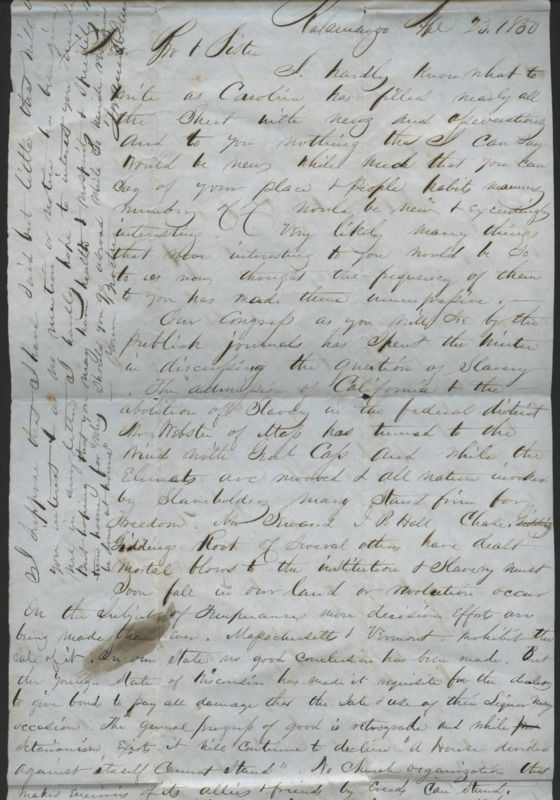 Kalamazoo Apl 23. 1850
Dear Bro & Sister
I hardly know what to
write as Caroline has filled nearly all
the Sheet with news and opperations
and to you nothing tha I can say
would be new while much that you can
say of your place & people habits manners
ministry &c &c would be new & exceedingly
interesting. Very likely many things
that were interesting to you would be so
to us now though the frequency of them
to you has made them unimpressive. —
Our Congress as you will see by the
publick journals has Spent the Winter
in discussing the question of Slavery
. The admission of California & the
abolition off Slavery in the federal district
Mr Webster of Mass has turned to the
Wind with Genl Cass and while the
Elements are mooved & all nature invoked
by Slaveholders many Stand firm for
Freedom. Mr Seward J P Hall Chase
Giddings Root & Several others have dealt
mortal blows to the institution & Slavery must
Soon fall in our land or revolution occur
On the subject of Temperance more decision Effort are
being made than Ever. Massachusetts & Vermont prohibit the
sale of it. In our State no good conclusion has been made. But
the younger State of Wisconsin has made it requisite for the dealers
to give bond to pay all damage that the Sale & use of their Liquor may
occasion. The general progress of good is retrograde and while
sectarianism Exists it will continue to decline "A House divided
against itself Cannot Stand". No Church organization that
makes Enemies of its allies & friend by Creeds Can Stand.
I suppose that I have said but little that will
you interest & as no mention or notice
made in any letter I hardly hope to interest you
But hoping that you may have health & prosperity & Spirit
while So
be some at home"